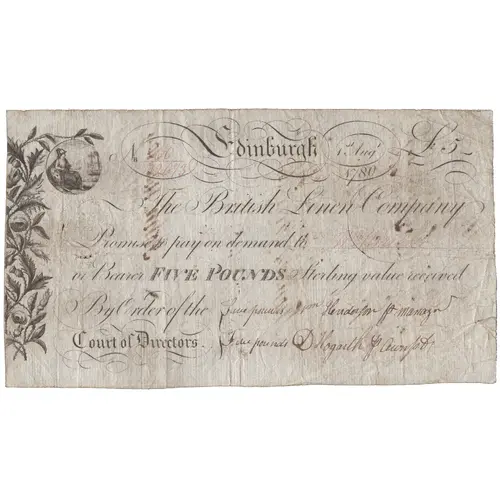 No Edinburgh 1st Augt £5
1780
The British Linen Company
Promise to pay on demand to
or Bearer FIVE POUNDS Sterling value received
By Order of the five pounds Wm Henderson Jt manager
Court of Directors. five pounds D Hogarth